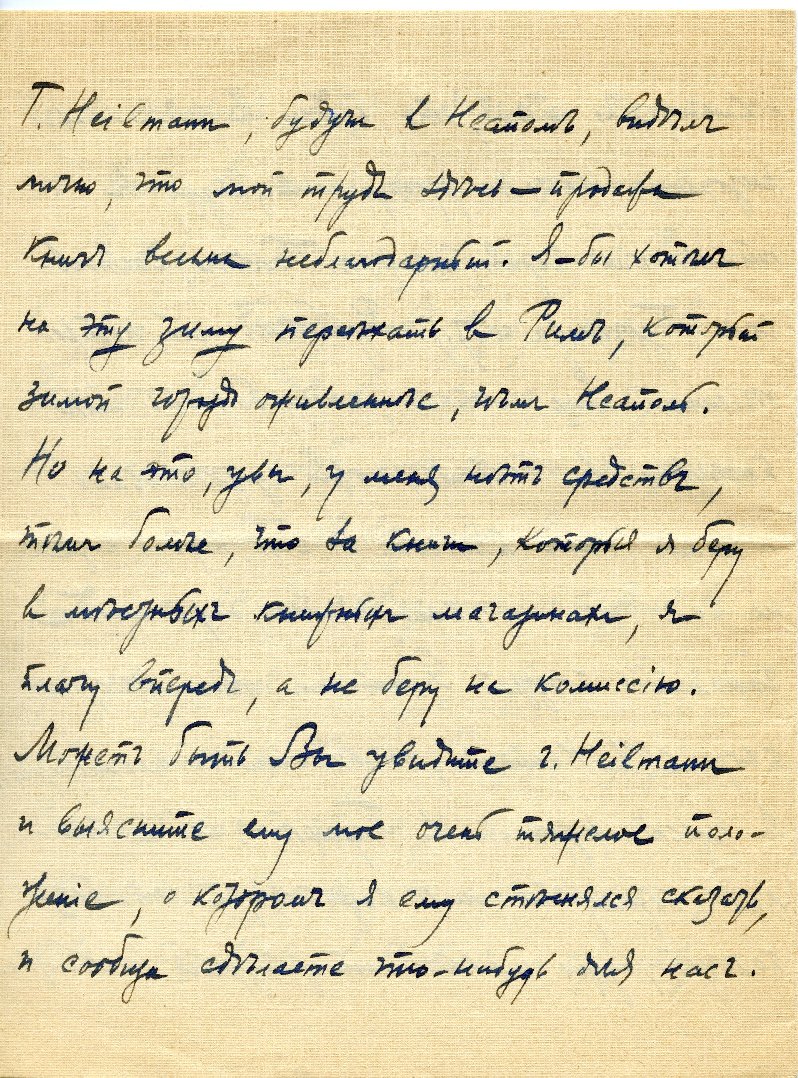 Г. Heilmann, будучи в Неаполѣ, видѣлъ
лично, что мой трудъ здѣсь — продажа
книгъ весьма неблагодарный. Я-бы хотѣлъ
на эту зиму переѣхать в Римъ, который
зимой городъ оживленнѣе, чѣмъ Неаполь.
Но на это, увы, у меня нѣтъ средствъ,
тѣмъ болѣе, что за книги, которыя я беру
в мѣстныхъ книжныхъ магазинахъ, я
плачу впередъ, а не беру на комиссію.
Можетъ быть Вы увидите г. Heilmann
и выясните ему мое очень тяжелое поло-
женіе, о которомъ я ему стѣснялся сказать,
и сообща сдѣлаете что-нибудь для насъ.